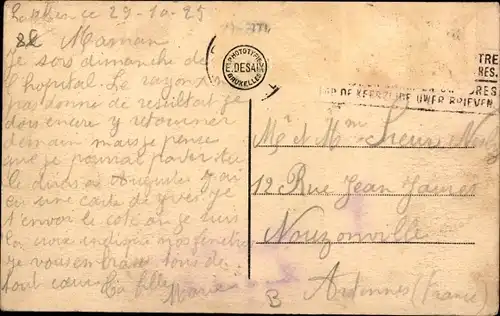 ce 29-10-25
Maman
Je sors dimanche de
l'hopital. Le rayon X n'a
pas donne de resultat je
dois encore y retourner
demain mais je pense
que je pourrai parler tu
le diras à Auguste j'ai
eu une carte de Yves je
t'envoi le coté on je suis
la croix indique nos fenetres
je vous embrasse tous de
tout cœur Ta fille
Marie
PHOTOTYPIE
E. DESAIX
BRUXELLES
DE KEERZIJDE UWER BRIEVEN
Mr et Mme
12 Rue Jean Jaures
Nouzonville
Ardennes (France)
B